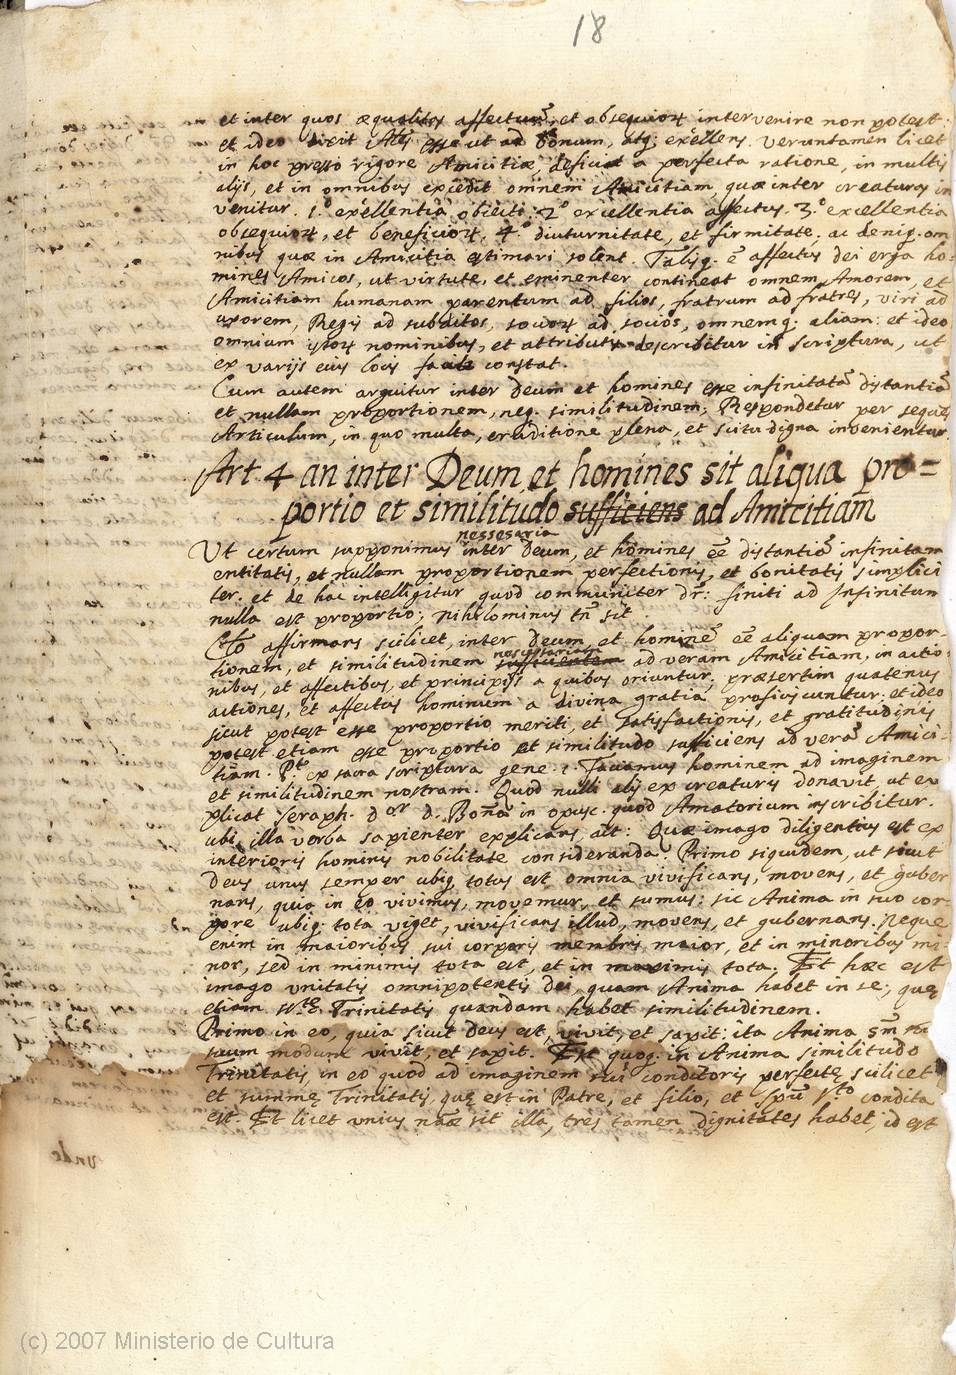 18
et inter quos æqualitas affectuũ, et obsequioꝝ intervenire non potest:
et ideo dicit esse ut ad bonum, atq; excellens. Veruntamen licet
in hoc presso rigore Amicitiæ, deficiat a perfecta ratione, in multis
alijs, et in omnibus excedit omnem Amicitiam, quæ inter creaturas in
venitur. 1.º excellentiâ obiecti. 2.º excellentia affectus. 3.º excellentia
obsequioꝝ, et beneficioꝝ. 4.º diuturnitate, et firmitate, ac deniq. om
nibus quæ in Amicitia estimari solent. Talisq. ẽ affectus dei erga ho-
mines Amicos, ut virtute, et eminenter contineat omnem Amorem, et
Amicitiam humanam parentum ad filios, fratrum ad fratres, viri ad
uxorem, Regis ad subditos, socioꝝ ad socios, omnemq; aliam: et ideo
omnium istoꝝ nominibus, et attributis describitur in scriptura, ut
ex varijs eius locis facile constat.
Cum autem arguitur inter Deum et homines esse infinitatã distantiã
et nullam proportionem, neq. similitudinem; Respondetur per sequẽ
Articulum, in quo multa, eruditione plena, et scitu digna invenientur.
Art. 4 an inter Deum et homines sit aliqua pro=
portio et similitudo sufficiens ad Amicitiam
nessesaria
Ut certum supponimus inter Deum, et homines eẽ distantiã infinitam
entitatis, et nullam proportionem perfectionis, et bonitatis simplici
ter. et de hac intelligitur quod communiter dr̃: finiti ad Infinitum
nulla est proportio; nihilominus tñ sit
Cl̃o affirmans scilicet, inter Deum et hominẽ eẽ aliquam propor-
necessariam
tionem, et similitudinem sufficientem ad veram Amicitiam, in actio
nibus, et affectibus, et principijs a quibus oriuntur, præsertim quatenus
actiones, et affectus hominum a divina gratia proficiscuntur: et ideo
sicut potest esse proportio meriti, et satisfactionis, et gratitudinis
potest etiam esse proportio et similitudo sufficiens ad verã Amici-
tiam. ex sacra scriptura gene. 1. Faciamus hominem ad imaginem
et similitudinem nostram. Quod nulli alij ex creaturis donavit, ut ex
plicat Seraph. dor d. Bonã in opusc. quod Amatorium inscribitur.
ubi illa verba sapienter explicans, ait: Quæ imago diligentius est ex
interioris hominis nobilitate consideranda. Primo siquidem, ut sicut
Deus unus semper ubiq. totus est, omnia vivificans, movens, et guber
nans, quia in eo vivimus, movemur, et sumus; sic Anima in suo cor-
pore ubiq. tota viget, vivificans illud, movens, et gubernans. Neque
enim in maioribus sui corporis membris maior, et in minoribus mi-
nor, sed in minimis tota est, et in maximis tota. Et hæc est
imago unitatis omnipotentis dei, quam Anima habet in se; quę
etiam Trinitatis quandam habet similitudinem.
Primo in eo, quia sicut Deus est, vivit, et sapit: ita Anima
suum modum vivit, et sapit. Est quoq. in Anima similitudo
Trinitatis, in eo quod ad imaginem sui conditoris perfectę scilicet
et summę Trinitatis, quę est in Patre, et filio, et condita
est. Et licet unius sit illa, tres tamen dignitates habet, id est
(c) 2007 Ministerio de Cultura